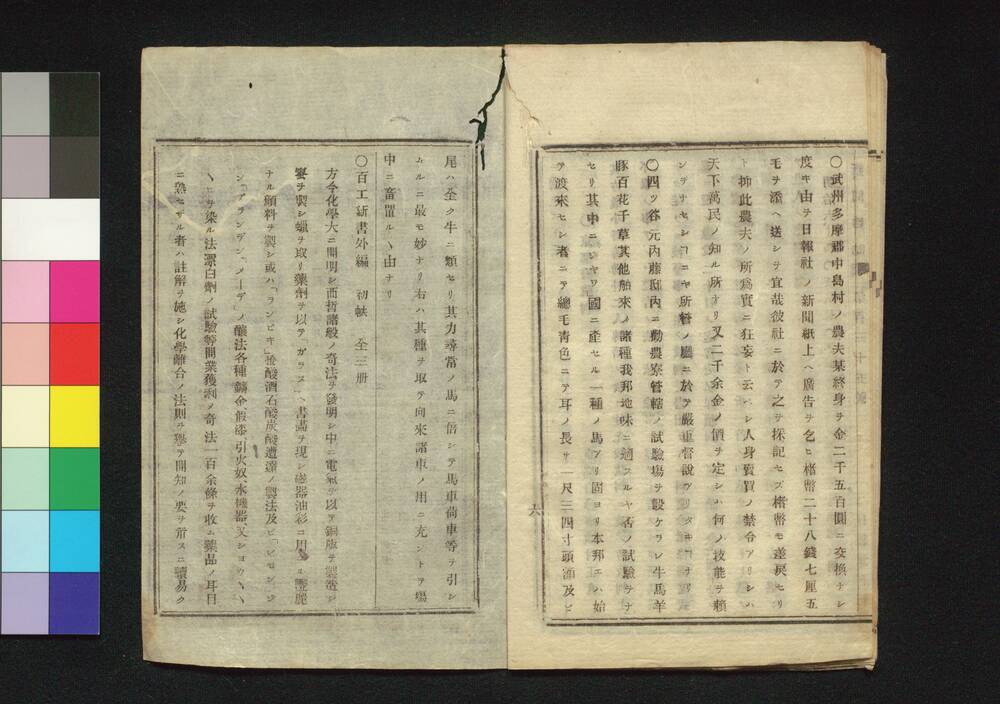 〇武州多摩郡中島村ノ農夫某終身ヲ金二千五百圓ニ交換ナシ
度キ由ヲ日報社ノ新聞紙上ヘ廣告ヲ乞ヒ楮幣二十八錢七厘五
毛ヲ添ヘ送シヲ宜哉彼社ニ於テ之ヲ採記セズ楮幣モ差戻セリ
ト抑此農夫ノ所爲實ニ狂妄ト云ベシ人身賣買ノ禁令アリシハ
天下萬民ノ知ル所ナリ又二千余金ノ價ヲ定シハ何ノ技能ヲ頼
ンデナセシコニヤ所管ノ廳ニ於テ嚴重督說アリタキコナリ
〇四ツ谷元内藤邸内ニ勸農寮管轄ノ試驗塲ヲ設ケラレ牛馬羊
豚百花千草其他舶來ノ諸種我邦地味ニ適スルヤ否ノ試驗ヲナ
セリ其中ニシヤワ國ニ產セル一種ノ馬アリ固ヨリ本邦ニハ始
テ渡來セシ者ニテ總毛青色ニテ耳ノ長サ一尺三四寸頭頷及ビ
六
尾ハ全ク牛ニ類セリ其力尋常ノ馬ニ倍シテ馬車荷車等ヲ引シ
ムルニ最モ妙ナリ右ハ其種ヲ取テ向來諸車ノ用ニ充ントテ塲
中ニ畜置ル丶由ナリ
〇百工新書外編 初帙 全三册
方今化學大ニ開明シ西哲諸般ノ奇法ヲ發明シ中ニ電氣ヲ以テ銅版ヲ製造シ
ヲ製シ蠟ヲ取リ藥劑ヲ以テガラスヘ書畵ヲ現シ磁器油彩ニ用ル豔麗
ナル顔料ヲ製シ或ハ「ランビキ」醯酸酒石酸炭酸遭達ノ製法及ビ「ヒモンジ
ン」「ブランデン」メーデノ釀法各種鑛金假漆引火奴氷機器又ショウ丶丶
丶ヒヲ染ル法漂白劑ノ試驗等開業獲利ノ奇法一百余條ヲ收ム藥品ノ耳目
ニ熟セザル者ハ註解ヲ施シ化學離合ノ法則ヲ擧テ開知ノ要ヲ示スニ讀易ク